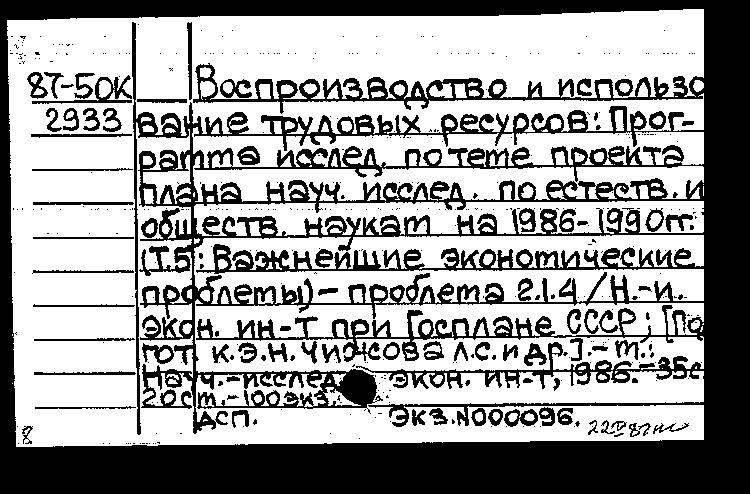 87-50К Воспроизводство и использо
2933 вание трудовых ресурсов: Прог-
рамма исслед. по теме проекта
плана науч. исслед. по естеств. и
обществ. наукам на 1986-1990гг.
(Т.5: Важнейшие экономические
проблемы) - проблема 2.1.4 / Н.-и.
экон. ин-т при Госплане СССР; [По
гот. к.э.н. Чижова Л.С. и др.]. - м.:
Науч.-исслед. экон. ин-т, 1986. - 35с.
20см. - 100экз.
ДСП. Экз.N000096.
8